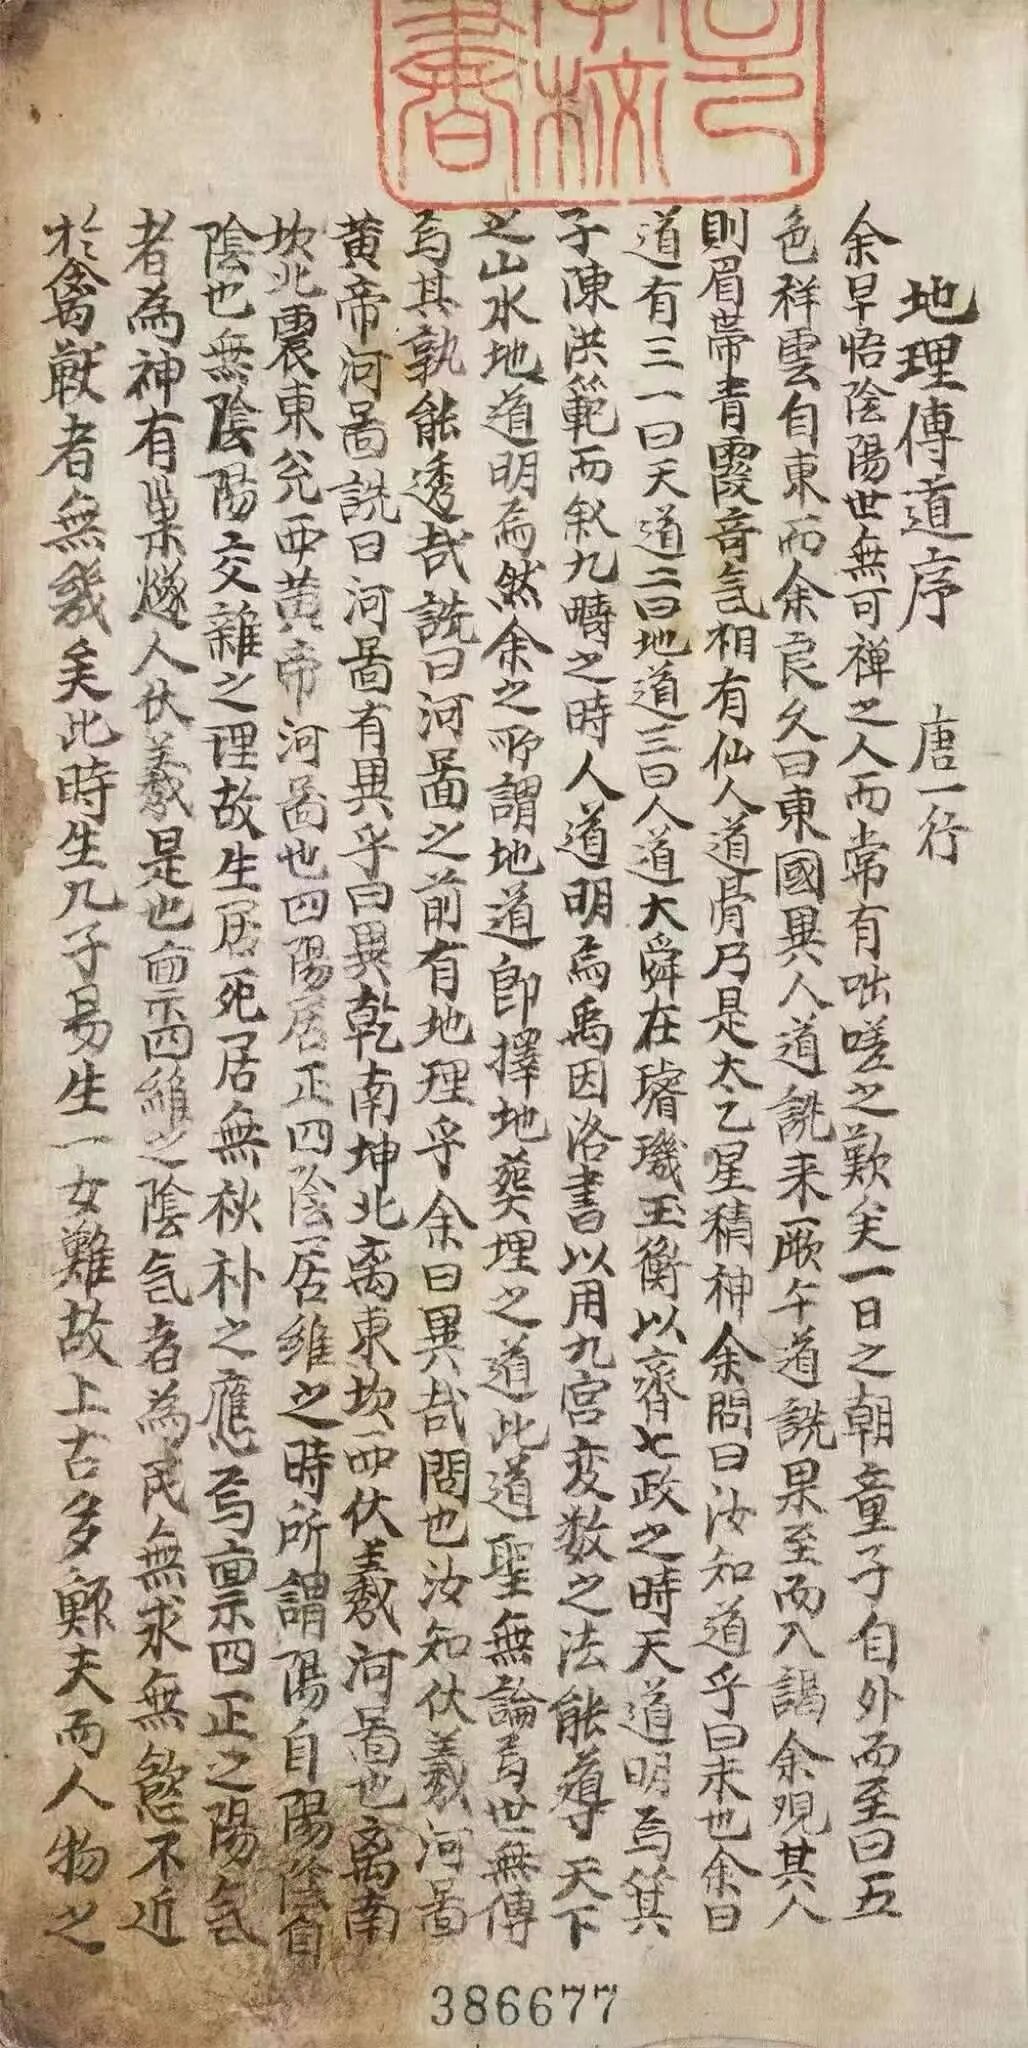 地理傳道序　唐一行
余早悟陰陽世無可禅之人而常有咄嗟之歎矣一日之朝童子自外而至曰五
色祥雲自東而余良久曰東國異人道詵来厥午道詵果至而入謁余观其人
則眉帶青霞音氣相有仙人道骨乃是太乙星精神余問曰汝知道乎曰未也余曰
道有三一曰天道二曰地道三曰人道大舜在璿璣玉衡以齊七政之時天道明焉箕
子陳洪範而叙九疇之時人道明焉禹因洛書以用九宮変数之法能導天下
之山水地道明焉然余之所謂地道即擇地葵埋之道此道聖無論焉世無傳
焉其孰能透哉詵曰河啚之前有地理乎余曰異哉問也汝知伏羲河啚
黄帝河啚詵曰河啚有異乎曰異乾南坤北离東坎西伏羲河啚也离南
坎北震東兊西黄帝河啚也四陽居正四陰居維之時所謂陽自陽陰自
陰也無陰陽交雜之理故生居死居無秋朴之應焉禀四正之陽氣
者為神有巢燧人伏羲是也禀四維之陰氣者為民無求無慾不近
於禽獸者無幾矣此時生几子易生一女難故上古多鰥夫而人物之
386677